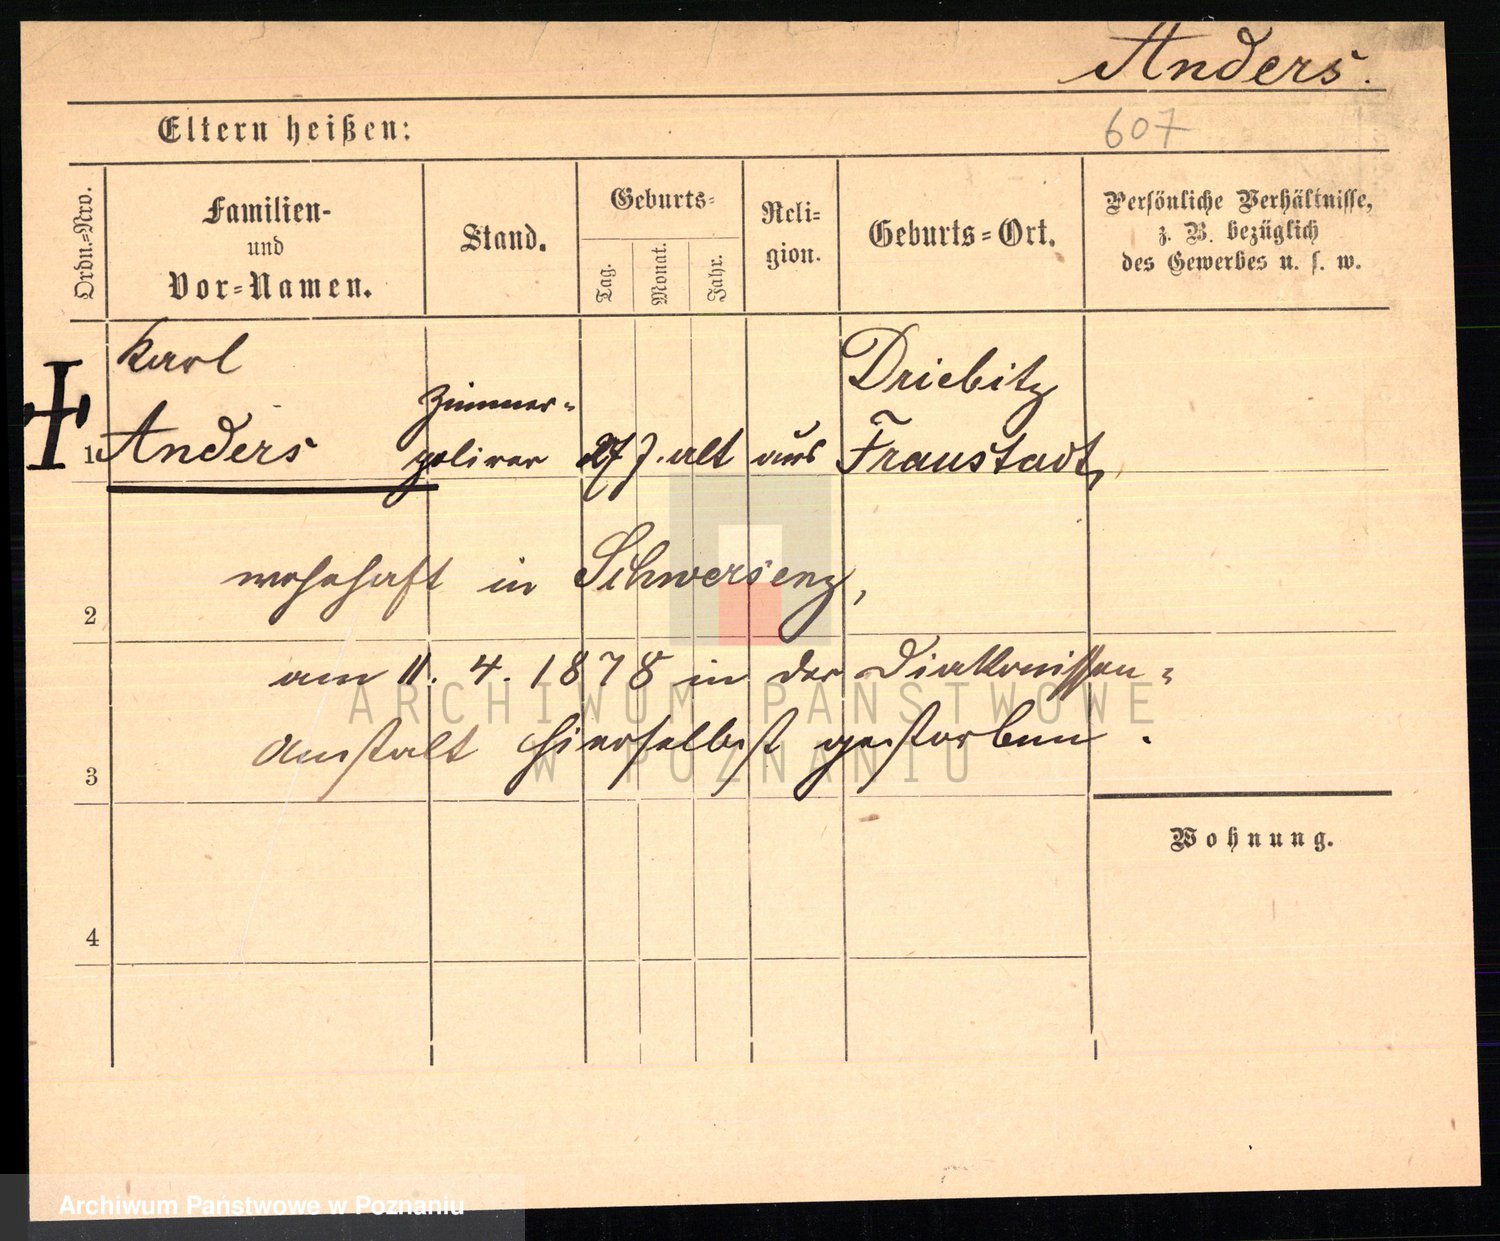 Anders.
607
Eltern heißen:
Ordn.=Nro.
Familien-
und
Vor=Namen.
Stand.
Geburts=
Tag.
Monat.
Jahr.
Reli=
gion.
Geburts=Ort.
Persönliche Verhältnisse,
z. B. bezüglich
des Gewerbes u. s. w.
Karl
Driebitz
Zimmer=
1 Anders polirer 27 J. alt aus Fraustadt,
wohnhaft in Schwersenz,
2
am 11. 4. 1878 in der Diakonissen=
ARCHIWUM PAŃSTWOWE
Anstalt hierselbst gestorben.
W POZNANIU
3
Wohnung.
4
Archiwum Państwowe w Poznaniu